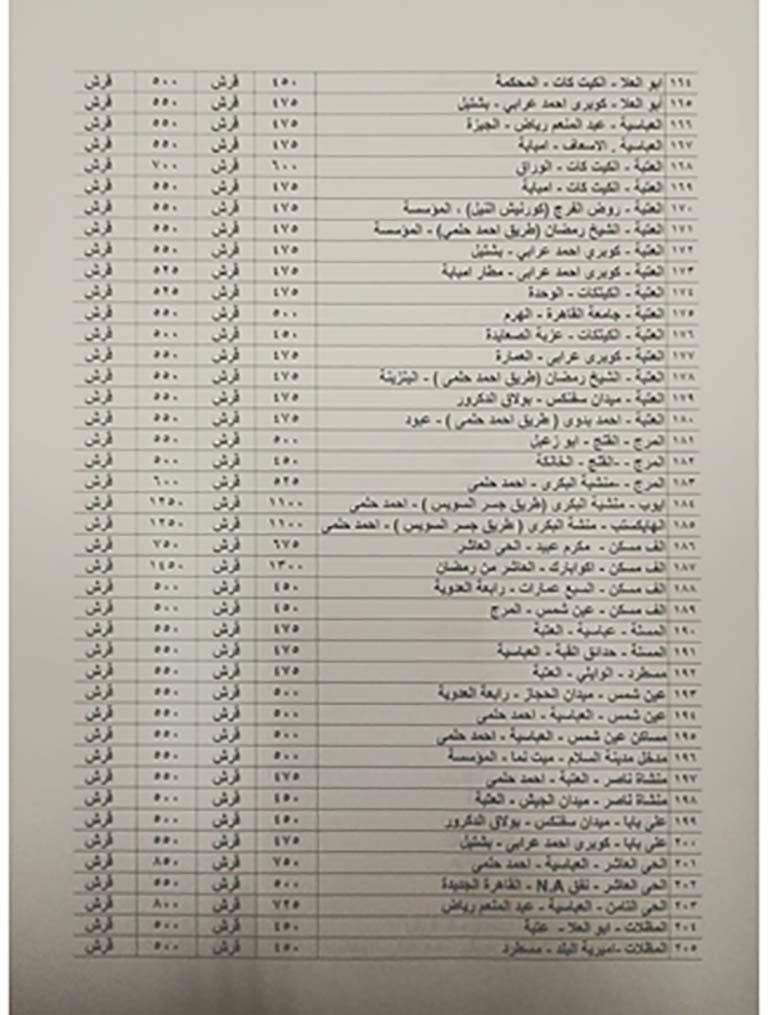 ١٦٤ ابو العلا - الكيت كات - المحكمة ٤٥٠ قرش ٥٠٠ قرش
١٦٥ ابو العلا - كوبرى احمد عرابي - بشتيل ٤٧٥ قرش ٥٥٠ قرش
١٦٦ العباسية - عبد المنعم رياض - الجيزة ٤٧٥ قرش ٥٥٠ قرش
١٦٧ العباسية . الاسعاف - امبابة ٤٧٥ قرش ٥٥٠ قرش
١٦٨ العتبة - الكيت كات - الوراق ٦٠٠ قرش ٧٠٠ قرش
١٦٩ العتبة - الكيت كات - امبابة ٤٧٥ قرش ٥٥٠ قرش
١٧٠ العتبة - روض الفرج (كورنيش النيل) ، المؤسسة ٤٧٥ قرش ٥٥٠ قرش
١٧١ العتبة - الشيخ رمضان (طريق احمد حلمي) - المؤسسة ٤٧٥ قرش ٥٥٠ قرش
١٧٢ العتبة - كوبرى احمد عرابي - بشتيل ٤٧٥ قرش ٥٥٠ قرش
١٧٣ العتبة - كوبرى احمد عرابى - مطار امبابة ٤٧٥ قرش ٥٢٥ قرش
١٧٤ العتبة - الكيتكات - الوحدة ٤٧٥ قرش ٥٢٥ قرش
١٧٥ العتبة - جامعة القاهرة - الهرم ٥٠٠ قرش ٥٥٠ قرش
١٧٦ العتبة - الكيتكات - عزبة الصعايدة ٤٥٠ قرش ٥٠٠ قرش
١٧٧ العتبة - كوبرى عرابى - العمارة ٤٧٥ قرش ٥٥٠ قرش
١٧٨ العتبة - الشيخ رمضان (طريق احمد حلمى ) - البنزينة ٤٧٥ قرش ٥٥٠ قرش
١٧٩ العتبة - ميدان سفنكس - بولاق الدكرور ٤٧٥ قرش ٥٥٠ قرش
١٨٠ العتبة - احمد بدوى ( طريق احمد حلمى ) - عبود ٤٧٥ قرش ٥٥٠ قرش
١٨١ المرج - القلج - ابو زعبل ٥٠٠ قرش ٥٥٠ قرش
١٨٢ المرج - -القلج - الخانكة ٤٥٠ قرش ٥٠٠ قرش
١٨٣ المرج - -منشية البكرى - احمد حلمى ٥٢٥ قرش ٦٠٠ قرش
١٨٤ ايوب - منشية البكرى (طريق جسر السويس ) - احمد حلمى ١١٠٠ قرش ١٢٥٠ قرش
١٨٥ الهايكستب - منشة البكرى ( طريق جسر السويس ) - احمد حلمى ١١٠٠ قرش ١٢٥٠ قرش
١٨٦ الف مسكن - مكرم عبيد - الحى العاشر ٦٧٥ قرش ٧٥٠ قرش
١٨٧ الف مسكن - اكوابارك - العاشر من رمضان ١٣٠٠ قرش ١٤٥٠ قرش
١٨٨ الف مسكن - السبع عمارات - رابعة العدوية ٤٥٠ قرش ٥٠٠ قرش
١٨٩ الف مسكن - عين شمس - المرج ٤٥٠ قرش ٥٠٠ قرش
١٩٠ المسلة - عباسية - العتبة ٤٧٥ قرش ٥٥٠ قرش
١٩١ المسلة - حدائق القبة - العباسية ٤٧٥ قرش ٥٥٠ قرش
١٩٢ مسطرد - الوايلي - العتبة ٤٧٥ قرش ٥٥٠ قرش
١٩٣ عين شمس - ميدان الحجاز - رابعة العدوية ٥٠٠ قرش ٥٥٠ قرش
١٩٤ عين شمس - العباسية - احمد حلمى ٥٠٠ قرش ٥٥٠ قرش
١٩٥ مساكن عين شمس - العباسية - احمد حلمى ٥٠٠ قرش ٥٥٠ قرش
١٩٦ مدخل مدينة السلام - ميت نما - المؤسسة ٥٠٠ قرش ٥٥٠ قرش
١٩٧ منشاة ناصر - العتبة - احمد حلمى ٤٧٥ قرش ٥٥٠ قرش
١٩٨ منشاة ناصر - ميدان الجيش - العتبة ٤٥٠ قرش ٥٠٠ قرش
١٩٩ على بابا - ميدان سفنكس - بولاق الدكرور ٤٥٠ قرش ٥٠٠ قرش
٢٠٠ على بابا - كوبرى احمد عرابى - بشتيل ٤٧٥ قرش ٥٥٠ قرش
٢٠١ الحى العاشر - العباسية - احمد حلمى ٧٥٠ قرش ٨٥٠ قرش
٢٠٢ الحى العاشر - نفق N.A - القاهرة الجديدة ٥٠٠ قرش ٥٥٠ قرش
٢٠٣ الحى الثامن - العباسية - عبد المنعم رياض ٧٢٥ قرش ٨٠٠ قرش
٢٠٤ المظلات - ابو العلا - عتبة ٤٥٠ قرش ٥٠٠ قرش
٢٠٥ المظلات -اميرية البلد - مسطرد ٤٥٠ قرش ٥٠٠ قرش